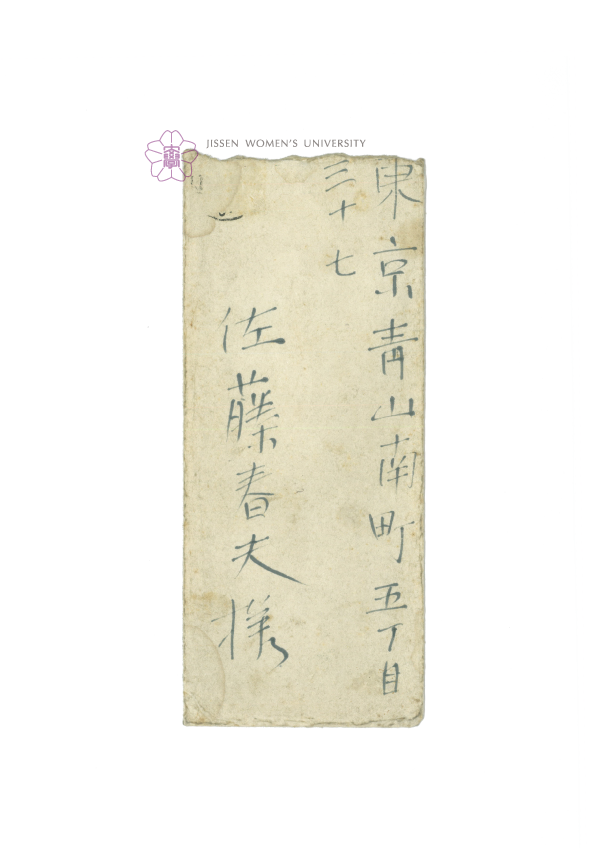 JISSEN WOMEN'S UNIVERSITY
東京青山南町五丁目
三十七
佐藤春夫様